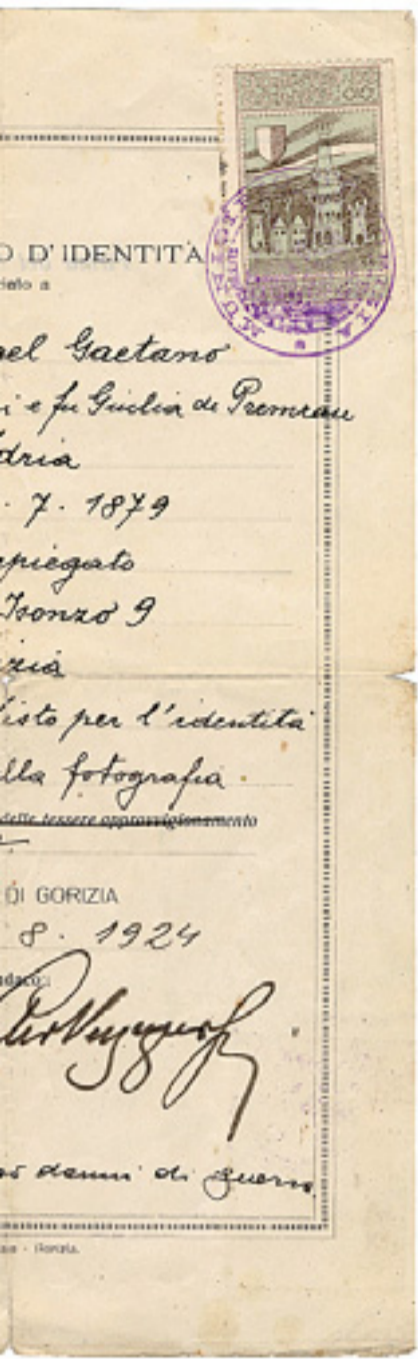 O D'IDENTITÀ
ciato a
ael Gaetano
i e fu Giulia de Premrau
dria
. 7. 1879
piegato
Isonzo 9
izia
isto per l'identità
lla fotografia
delle tessere approvvigionamento
DI GORIZIA
8. 1924
ndaco:
danni di guerra
Gorizia.